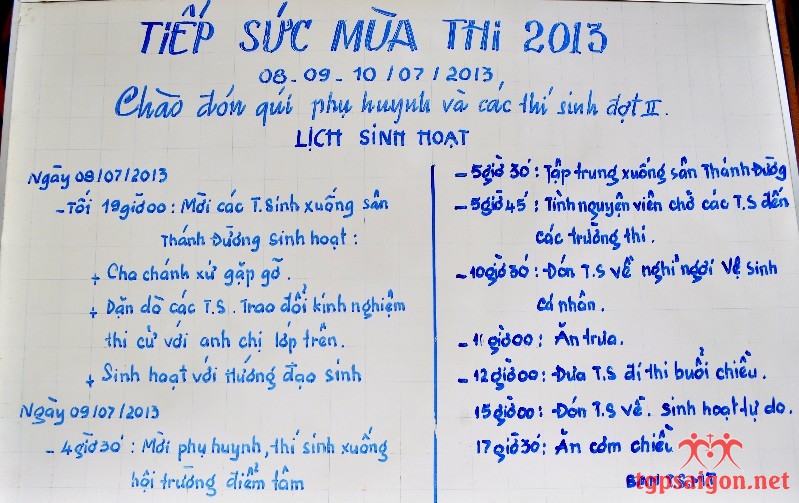 TIẾP SỨC MÙA THI 2013
08-09-10/07/2013
Chào đón quí phụ huynh và các thí sinh đợt II.
LỊCH SINH HOẠT
Ngày 08/07/2013
- Tối 19giờ00: Mời các T.Sinh xuống sân
Thánh Đường sinh hoạt:
+ Cha chánh xứ gặp gỡ.
+ Dặn dò các T.S. Trao đổi kinh nghiệm
thi cử với anh chị lớp trên.
+ Sinh hoạt với Hướng đạo sinh
Ngày 09/07/2013
- 4giờ30: Mời phụ huynh, thí sinh xuống
hội trường điểm tâm
- 5giờ30: Tập trung xuống sân Thánh Đường
- 5giờ45: Tình nguyện viên chở các T.S đến
các trường thi.
- 10giờ30: Đón T.S về nghỉ ngơi vệ sinh
cá nhân.
- 11giờ00: Ăn trưa.
- 12giờ00: Đưa T.S đi thi buổi chiều.
15giờ00: Đón T.S về. sinh hoạt tự do.
17giờ30: Ăn cơm chiều
BAN TSMT
tgpsaigon.net